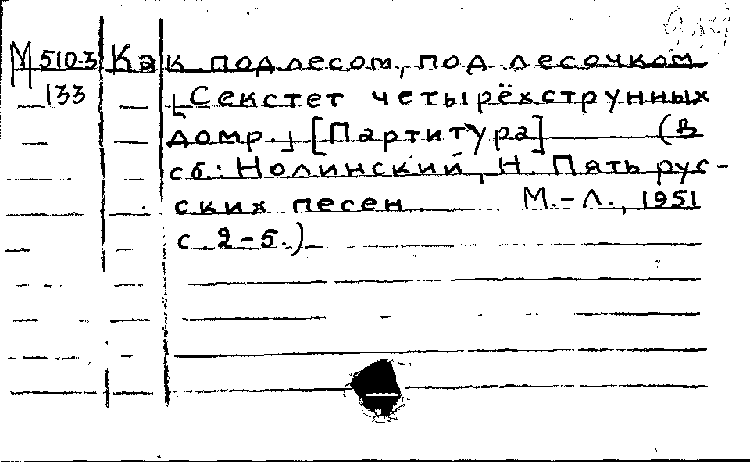 М 510-3 Как под лесом, под лесочком
133 [Секстет четырёхструнных
домр.] [Партитура] (В
сб: Нолинский, Н. Пять рус-
ских песен. М.-Л., 1951
с. 2-5.)